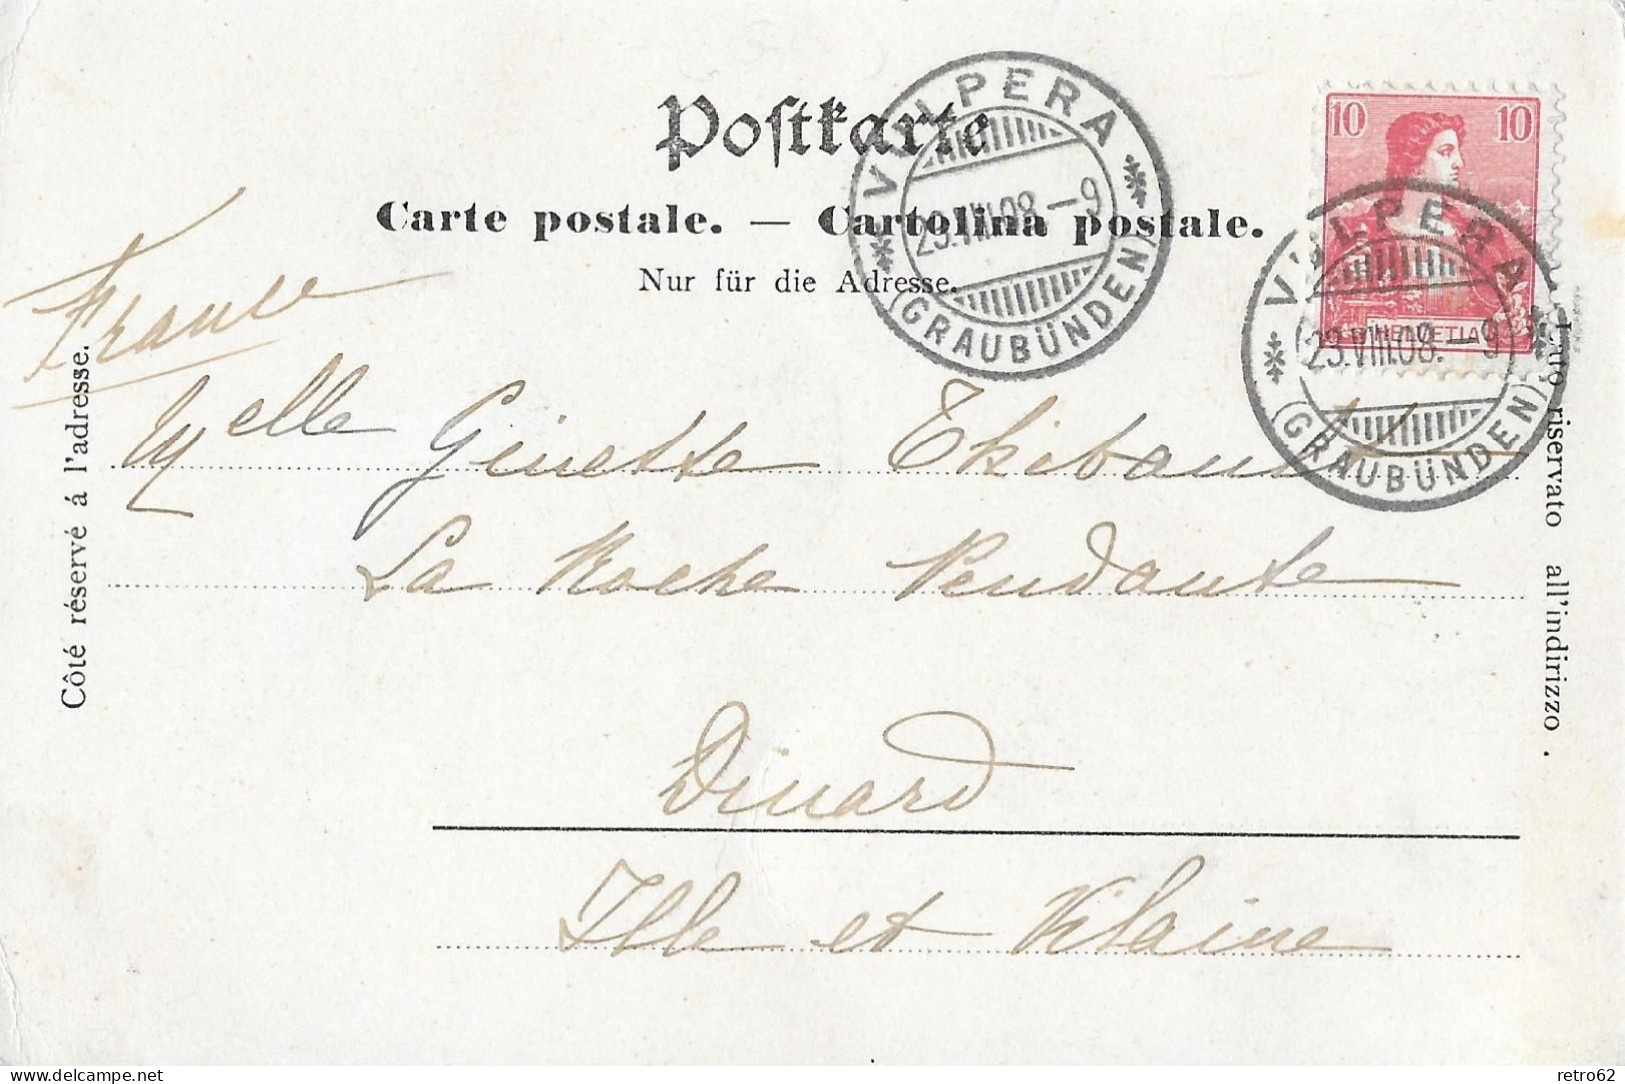 Postkarte
Carte postale. — Cartolina postale.
Nur für die Adresse.
VULPERA
23.VIII.08.–9
(GRAUBÜNDEN)
10 10
HELVETIA
VULPERA
23.VIII.08.–9
(GRAUBÜNDEN)
France
Côté réservé á l'adresse.
Lato riservato all'indirizzo.
Melle Ginette Thibault
La Roche Pendante
Dinard
Ille et Vilaine
delcampe.net
retro62